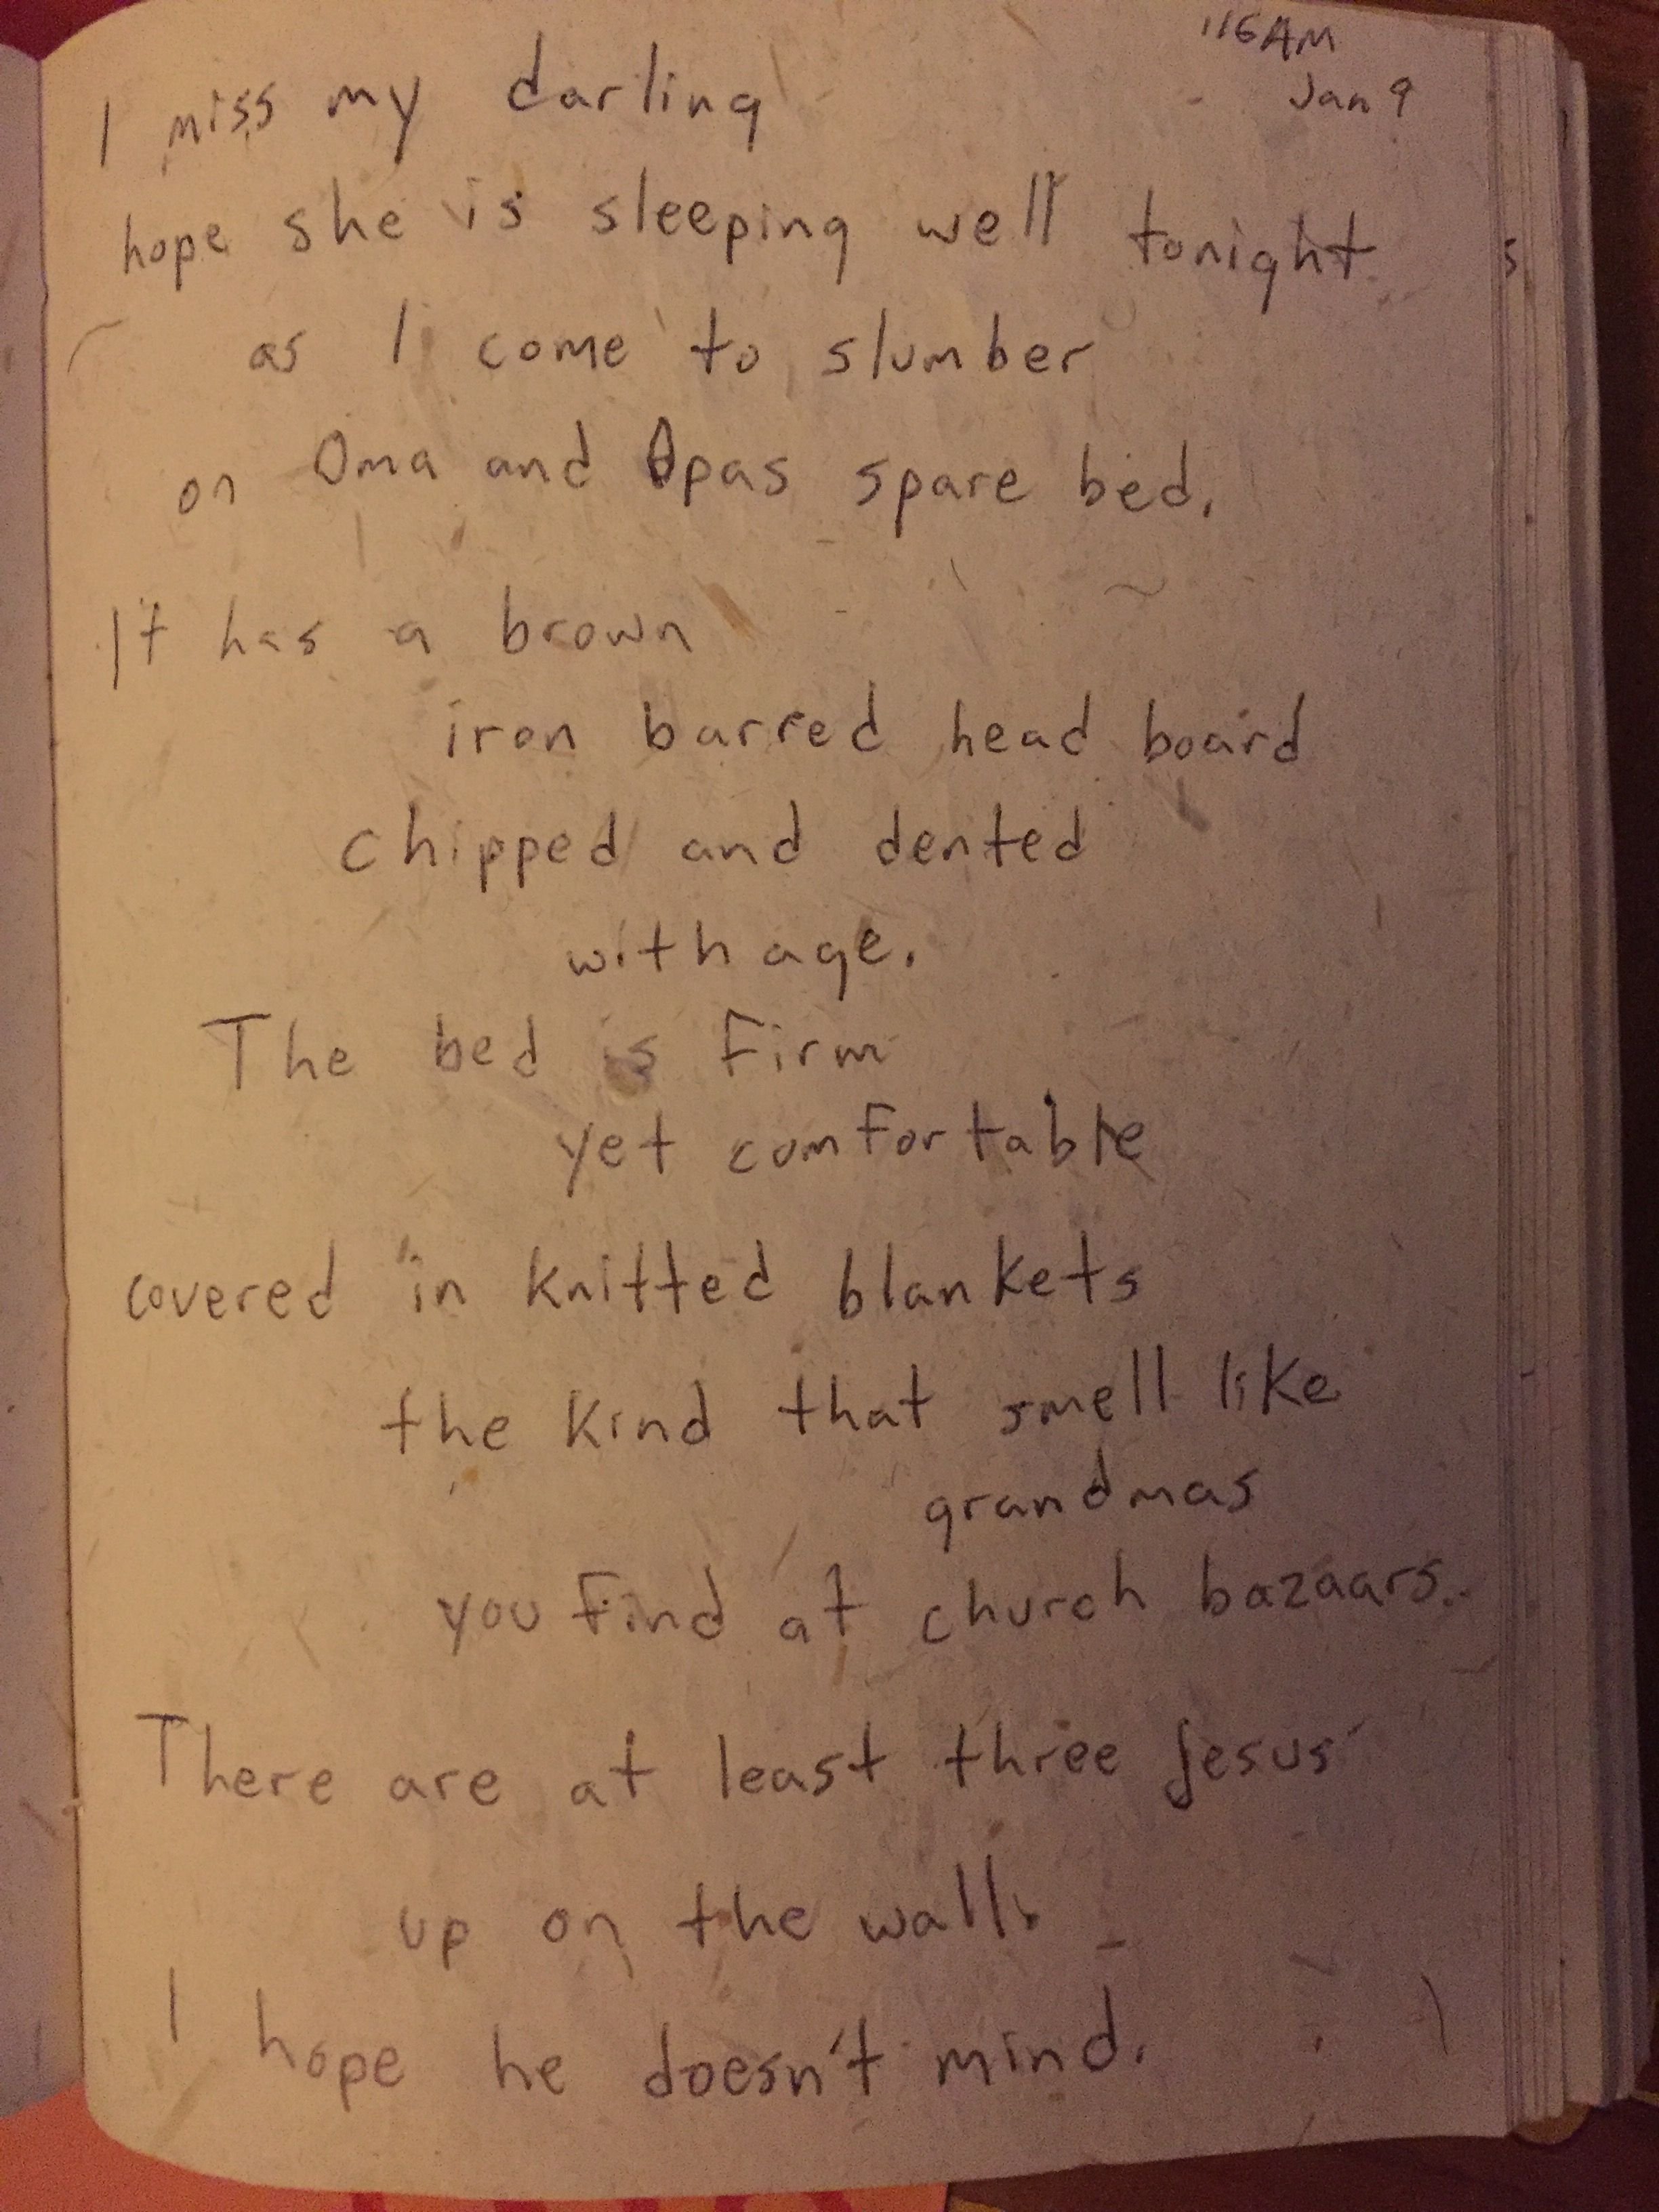 116AM
Jan 9
I miss my darling
hope she is sleeping well tonight
as I come to slumber
on Oma and Opas spare bed.
It has a brown
iron barred head board
chipped and dented
with age.
The bed is firm
yet comfortable
covered in knitted blankets
the kind that smell like
grandmas
you find at church bazaars.
There are at least three Jesus'
up on the wall.
I hope he doesn't mind.
s